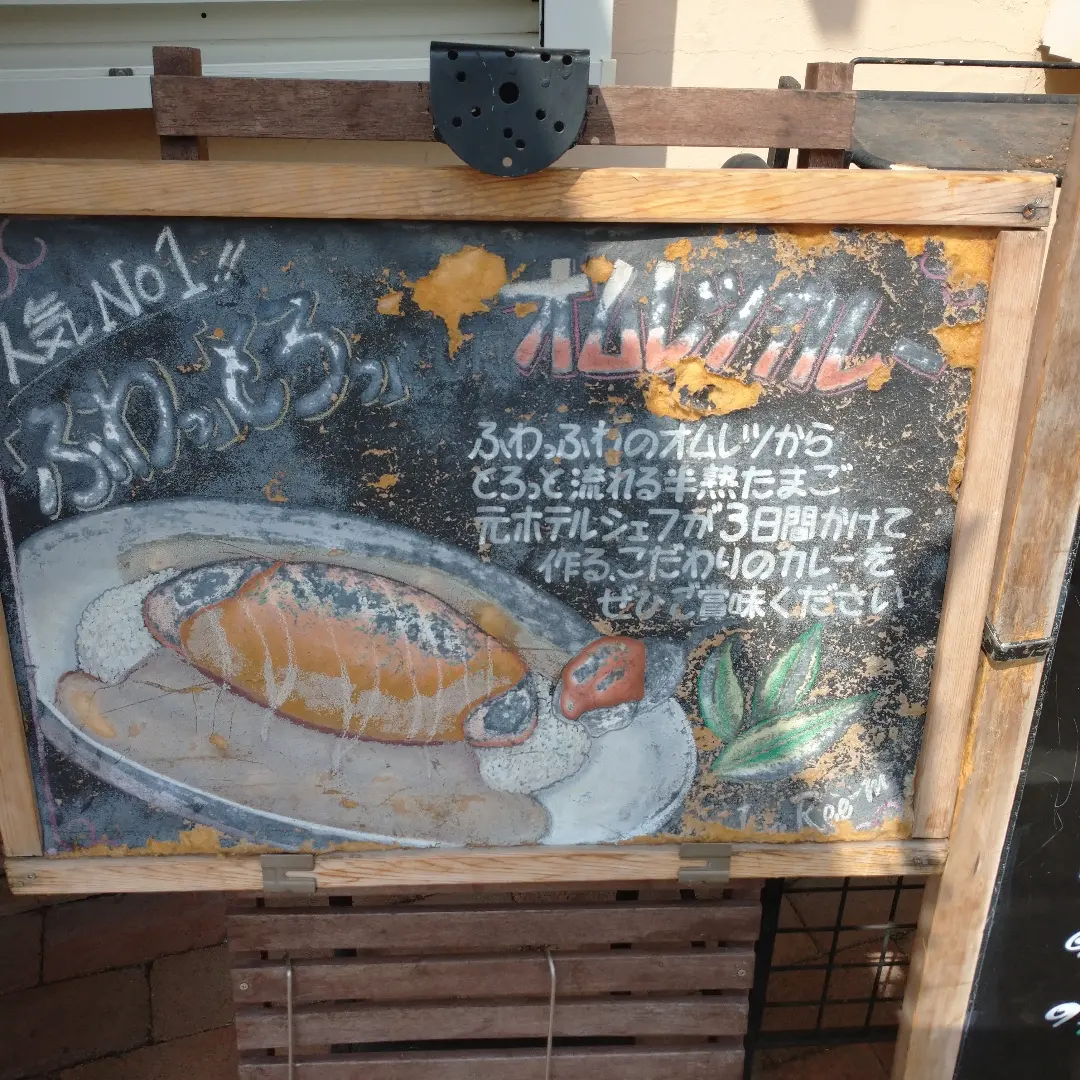 人気No1!!
ふわっとろっ
オムレツカレー
ふわっふわのオムレツから
とろっと流れる半熟たまご
元ホテルシェフが3日間かけて
作る、こだわりのカレーを
ぜひご賞味ください